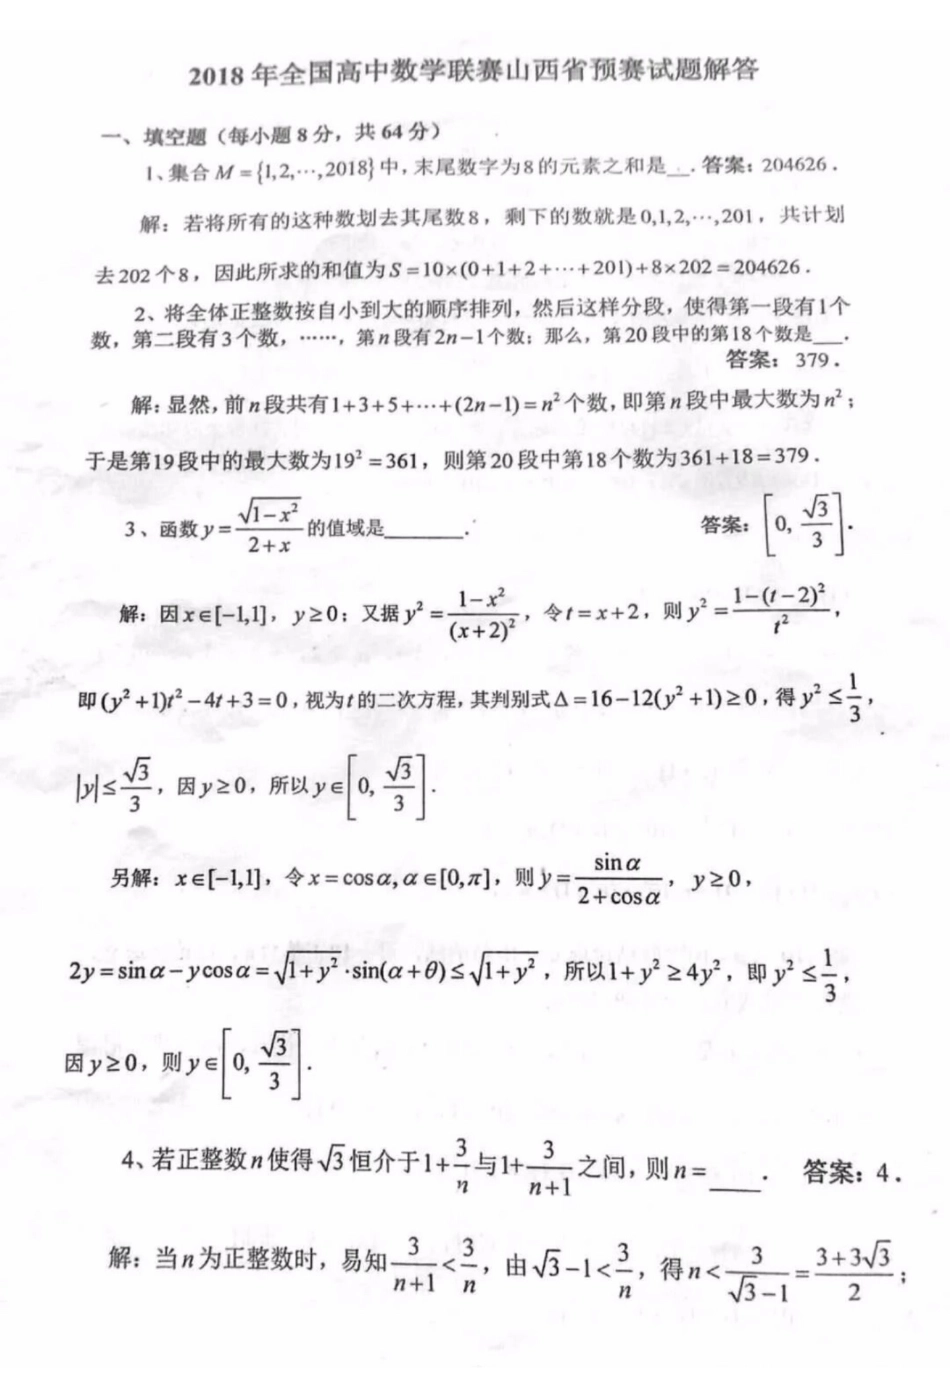 2018 年全国高中数学联赛山西省预赛试题解答
一、填空题（每小题 8 分，共 64 分）
1、集合 M = {1,2,⋯,2018} 中，末尾数字为8的元素之和是__. 答案：204626．
解：若将所有的这种数划去其尾数8，剩下的数就是0,1,2,⋯,201，共计划
去202个8，因此所求的和值为 S =10×(0+1+2+⋯+201)+8×202=204626．
2、将全体正整数按自小到大的顺序排列，然后这样分段，使得第一段有1个
数，第二段有3个数，……，第n段有2n−1个数；那么，第20段中的第18个数是___.
答案：379．
解：显然，前n段共有1+3+5+⋯+(2n−1)=n²个数，即第n段中最大数为n²；
于是第19段中的最大数为19²=361，则第20段中第18个数为361+18=379．
3、函数 y = √(1−x²)/(2+x) 的值域是________. 答案：[0, √3/3].
解：因x∈[−1,1]，y≥0；又据 y² = (1−x²)/(x+2)²，令t=x+2，则 y² = (1−(t−2)²)/t²，
即(y²+1)t²−4t+3=0，视为t的二次方程，其判别式Δ=16−12(y²+1)≥0，得 y² ≤ 1/3，
|y|≤√3/3，因y≥0，所以 y∈[0, √3/3].
另解：x∈[−1,1]，令x=cosα, α∈[0,π]，则 y = sinα/(2+cosα)，y≥0，
2y=sinα−ycosα=√(1+y²)·sin(α+θ)≤√(1+y²)，所以1+y²≥4y²，即 y² ≤ 1/3，
因y≥0，则 y∈[0, √3/3].
4、若正整数n使得√3恒介于1+3/n与1+3/(n+1)之间，则n=____. 答案：4．
解：当n为正整数时，易知3/(n+1)<3/n，由√3−1<3/n，得n<3/(√3−1)=(3+3√3)/2；